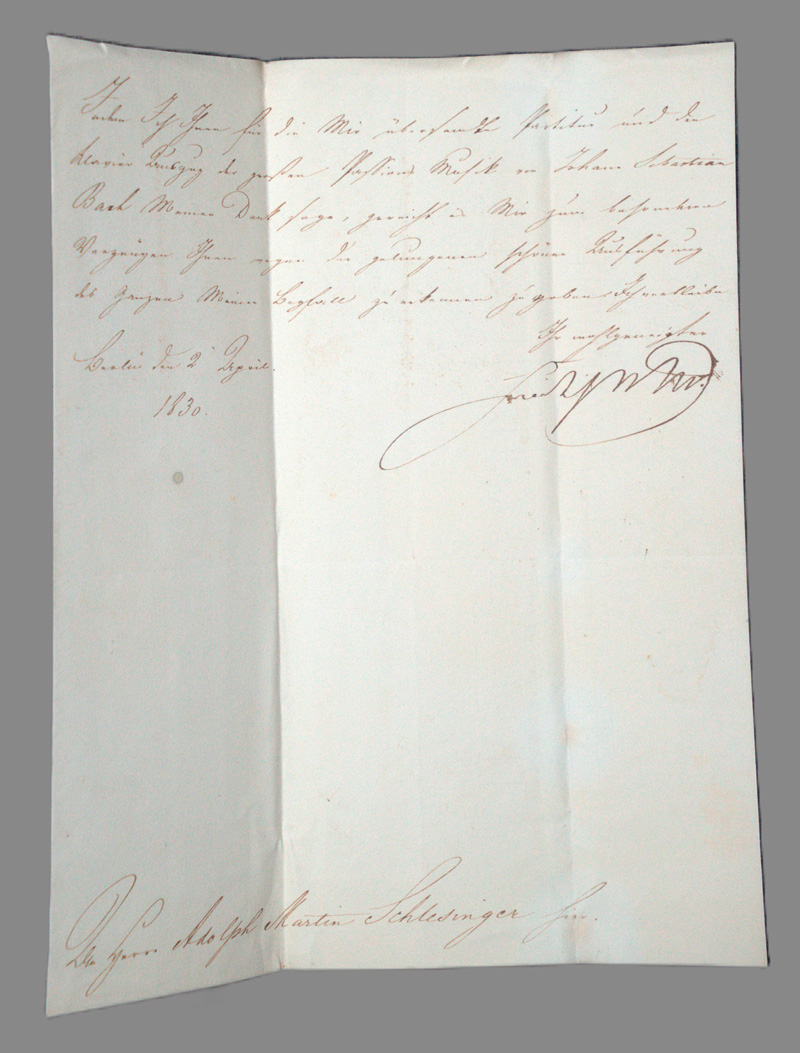 Indem Ich Ihnen für die Mir übersandte Partitur und den
Klavier Auszug der großen Passions Musik von Johann Sebastian
Bach Meinen Dank sage, gereicht es Mir zum besonderen
Vergnügen Ihnen wegen der gelungenen schönen Ausführung
des Ganzen Meinen Beyfall zu erkennen zu geben. Ich verbleibe
Ihr wohlgeneigter
Berlin den 2 April.
1830.
Herrn Adolph Martin Schlesinger